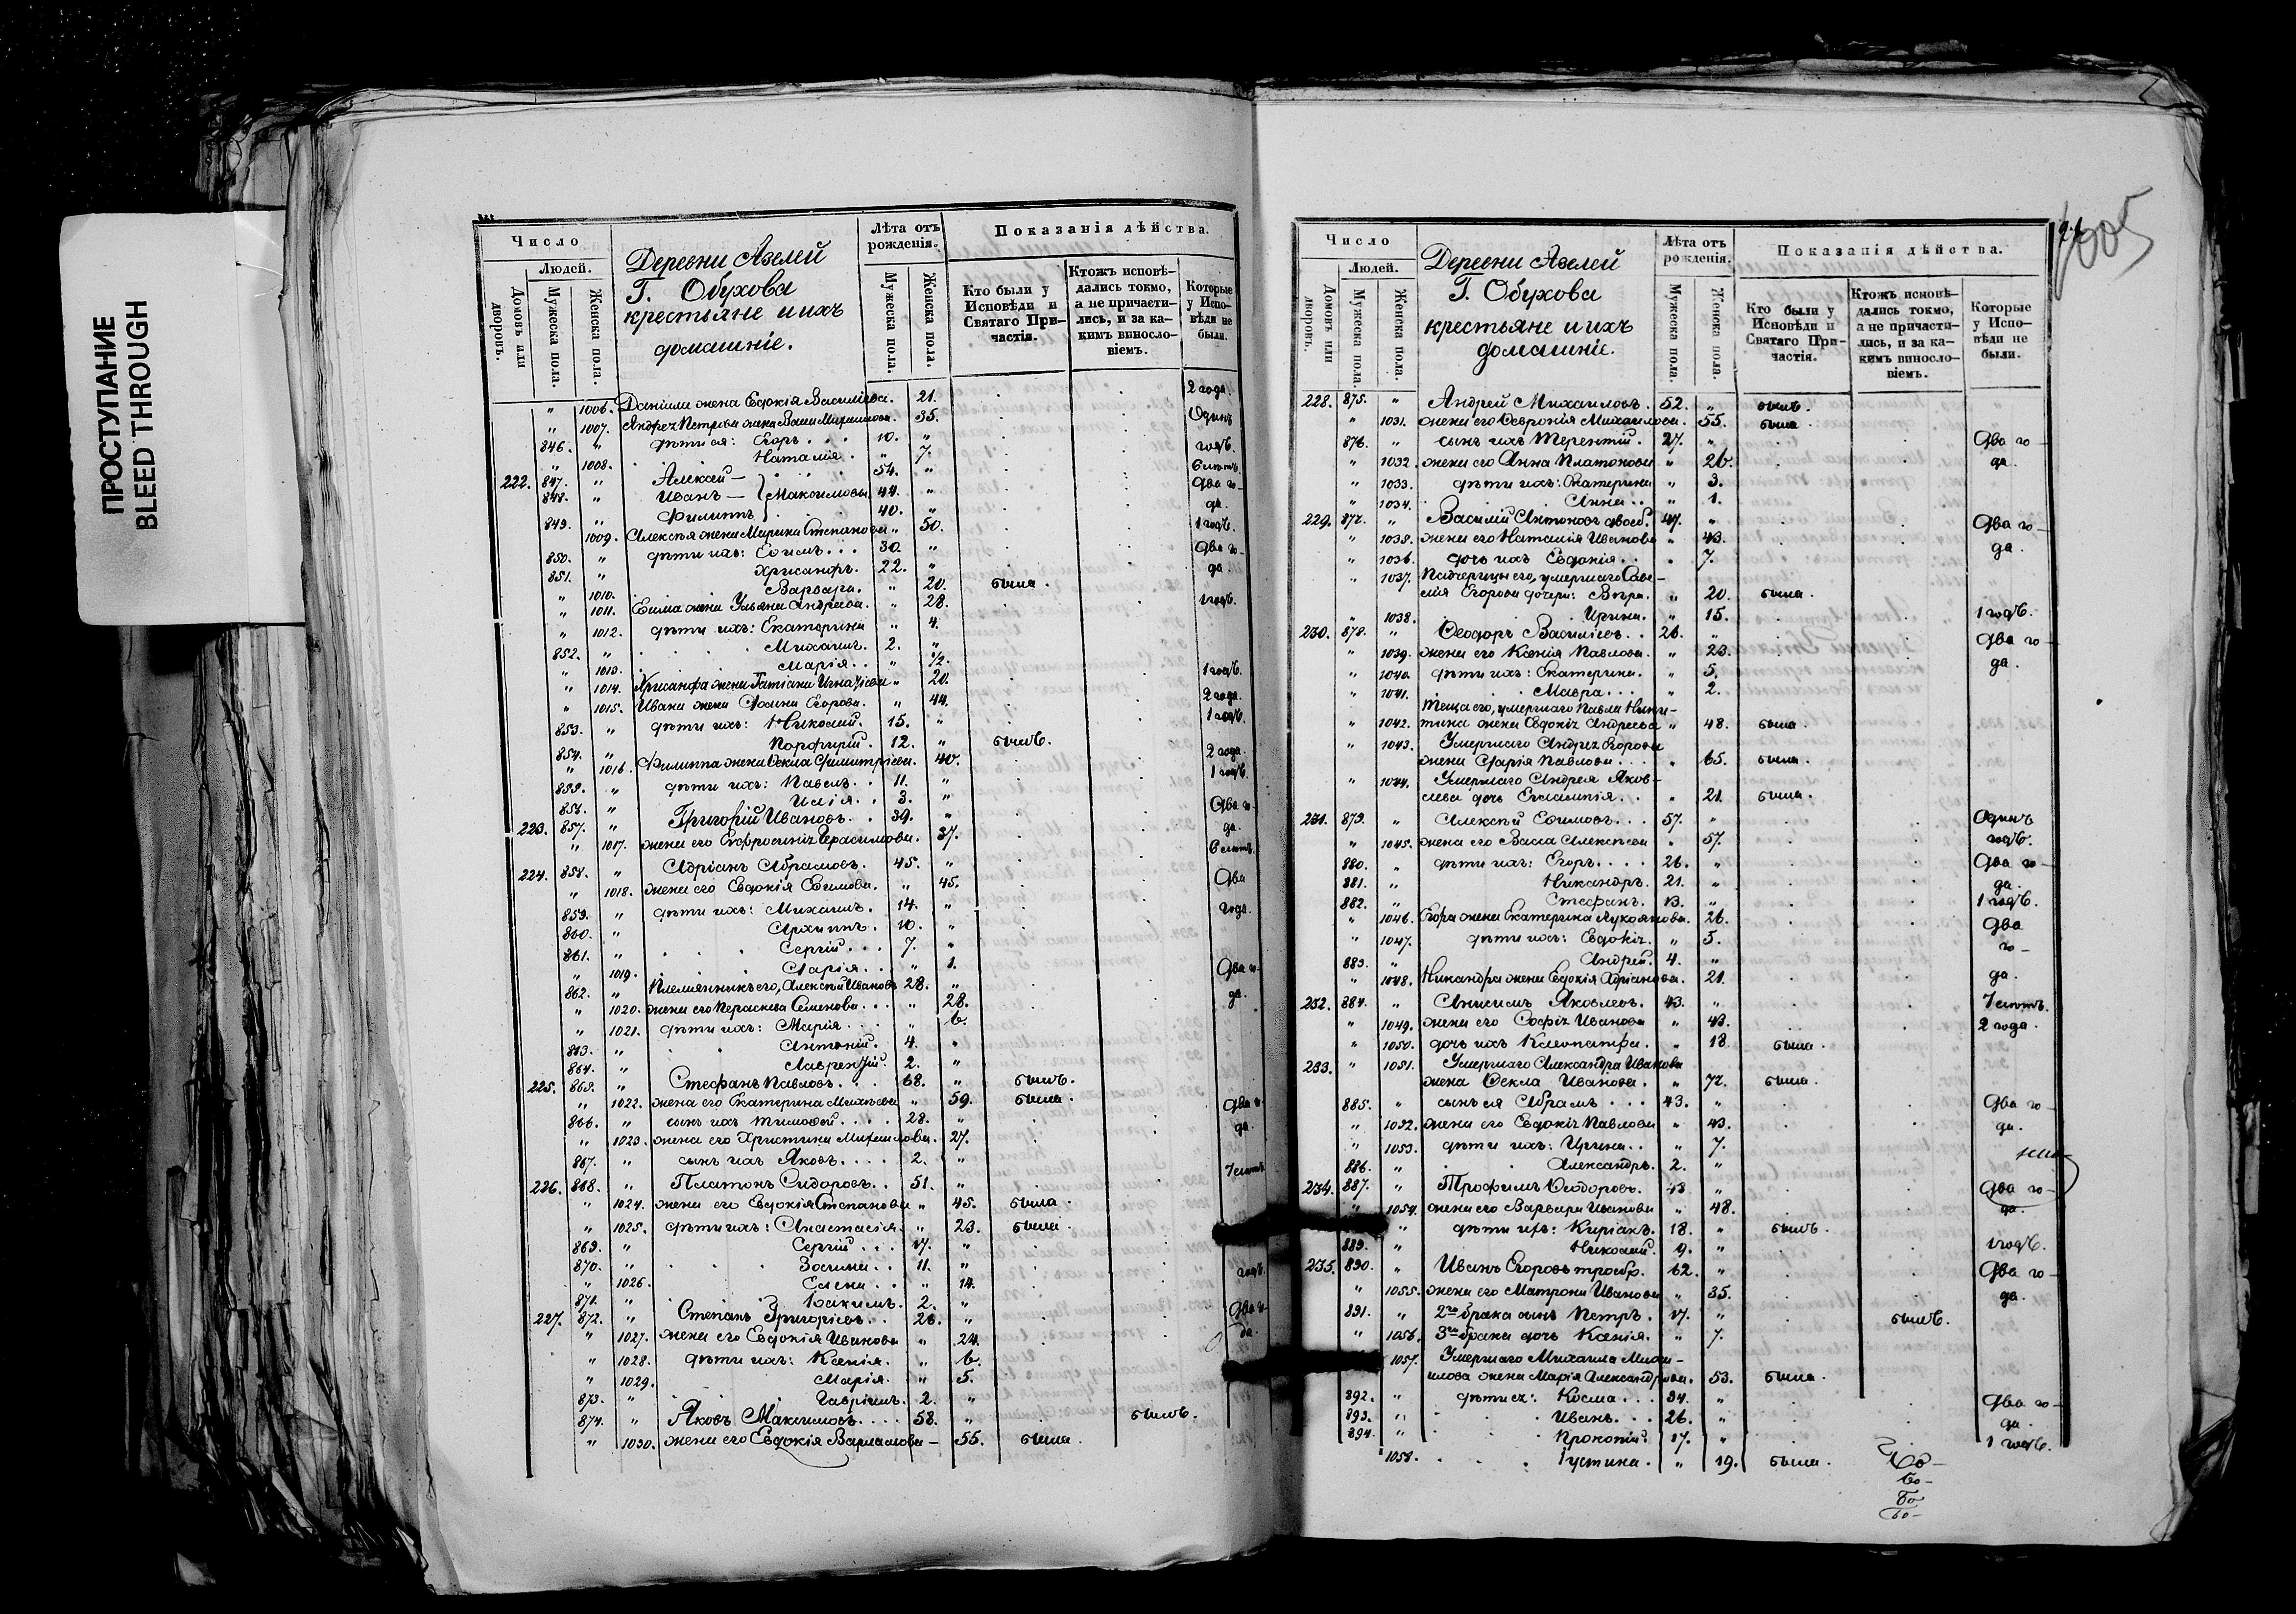 ПРОСТУПАНИЕ
BLEED THROUGH
Число
Людей.
Домовъ или дворовъ.
Мужеска пола.
Женска пола.
Деревни Азелей
Г. Обухова
крестьяне и ихъ
домашніе.
Лѣта отъ рожденія.
Мужеска пола.
Женска пола.
Показанія дѣйства.
Кто были у Исповѣди и Святаго Причастія.
Ктожъ исповѣдались токмо, а не причастились, и за какимъ винословіемъ.
Которые у Исповѣди не были.
" 1006. Даніила жена Евдокія Василіева. 21. 2 года.
" 1007. Андрея Петрова жена 35. Одинъ
846. " дѣти ея: Егоръ 10. " годъ.
" 1008. Наталія. " 7. 6 лѣтъ.
222. 847. " Алексѣй 54. " Два го-
848. " Иванъ Максимовы 44. " да.
849. " Филиппъ 40. " 1 годъ.
1009. Алексѣя жена Марина Степанова " 50. Два го-
850. " дѣти ихъ: Ефимъ 30. " да.
851. " Хрисанфъ. 22. "
" 1010. Варвара. " 20. была.
" 1011. Ефима жена Ульяна Андреева. " 28. 1 годъ.
" 1012. дѣти ихъ: Екатерина " 4.
852. " Михаилъ. 2. "
" 1013. Марія. " 1/2.
" 1014. Хрисанфа жена Татіана Игнатіева " 20. 1 годъ.
" 1015. Ивана жена Егорова. " 44. 2 года.
853. " дѣти ихъ: Николай. 15. " 1 годъ.
854. " Порфирій. 12. " былъ.
" 1016. Филиппа жена Ѳекла Димитріева. 40. 2 года.
855. " дѣти ихъ: Павелъ. 11. " 1 годъ.
856. " Илія. 3. "
223. 857. " Григорій Ивановъ. 39. " Два го-
" 1017. жена его Евфросинія Герасимова. 37. да.
224. 858. " Адріанъ Абрамовъ. 45. " 6 лѣтъ.
" 1018. жена его Евдокія Ефимова. " 45. Два
859. " дѣти ихъ: Михаилъ. 14. " года.
860. " Архиппъ. 10. "
861. " Сергій. 7. "
" 1019. Марія. " 1.
862. " Племянникъ его, Алексѣй Ивановъ 28. " Два го-
" 1020. жена его Параскева Семенова. " 28. да.
" 1021. дѣти ихъ: Марія. " 6.
863. " Антоній. 4. "
864. " Лаврентій. 2. "
225. 865. " Стефанъ Павловъ. 68. " былъ.
" 1022. жена его Екатерина Михѣева " 59. была.
866. " сынъ ихъ Тимофей. 28. " Два го-
" 1023. жена его Христина Михаилова. 27. да.
867. " сынъ ихъ Яковъ. 2. "
226. 868. " Платонъ Сидоровъ. 51. " 7 лѣтъ
" 1024. жена его Евдокія Степанова " 45. была.
" 1025. дѣти ихъ: Анастасія. " 23. была.
869. " Сергій 17. "
870. " Зосима. 11. "
" 1026. Елена " 14. годъ.
871. " Іоакимъ. 2. "
227. 872. " Степанъ Григорьевъ. 26. " Два го-
" 1027. жена его Евдокія Иванова " 24. да.
" 1028. дѣти ихъ: Ксенія. " 6.
" 1029. Марія. " 5.
873. " Гавріилъ. 2. "
874. " Яковъ Максимовъ. 58. " былъ.
" 1030. жена его Евдокія Варламова 55. была.
1005
Число
Людей.
Домовъ или дворовъ.
Мужеска пола.
Женска пола.
Деревни Азелей
Г. Обухова
крестьяне и ихъ
домашніе.
Лѣта отъ рожденія.
Мужеска пола.
Женска пола.
Показанія дѣйства.
Кто были у Исповѣди и Святаго Причастія.
Ктожъ исповѣдались токмо, а не причастились, и за какимъ винословіемъ.
Которые у Исповѣди не были.
228. 875. " Андрей Михаиловъ. 52. " былъ.
" 1031. жена его Февронія Михаилова. 55. была
876. " сынъ ихъ Терентій. 27. " Два го-
" 1032. жена его Анна Платонова " 26. да.
" 1033. дѣти ихъ: Екатерина " 3.
" 1034. Анна " 1.
229. 877. " Василій Антоновъ двоеб. 47. " Два го-
" 1035. жена его Наталія Иванова " 43. да.
" 1036. дочь ихъ Евдокія. " 7.
" 1037. Падчерицы его, умершаго Саве-
лія Егорова дочери: Вѣра. " 20. была.
" 1038. Ирина. " 15. 1 годъ.
230. 878. " Ѳеодоръ Василіевъ. 26. " Два го-
" 1039. жена его Ксенія Павлова. " 23. да.
" 1040. дѣти ихъ: Екатерина. " 5.
" 1041. Мавра. " 2.
Теща его, умершаго Павла Ники-
" 1042. тина жена Евдокія Андреева " 48. была.
" 1043. Умершаго Андрея Егорова
жена Марія Павлова. " 65. была.
" 1044. Умершаго Андрея Яков-
лева дочь Евлампія. " 21. была.
231. 879. " Алексѣй Ефимовъ. 57. " Одинъ
" 1045. жена его Васса Алексѣева " 57. годъ.
880. " дѣти ихъ: Егоръ. 26. " Два го-
881. " Никандръ. 21. " да.
882. " Стефанъ. 13. " 1 годъ.
" 1046. Егора жена Екатерина Лукоянова. 26. Два
" 1047. дѣти ихъ: Евдокія. " 5. го-
883. " Андрей. 4. "
" 1048. Никандра жена Евдокія Адріанова. 21. да.
232. 884. " Анисимъ Яковлевъ. 43. " 7 лѣтъ.
" 1049. жена его Софія Иванова " 43. 2 года.
" 1050. дочь ихъ Клеопатра. " 18. была.
233. " 1051. Умершаго Александра Иванова
жена Ѳекла Иванова. " 72. была.
885. " сынъ ея Абрамъ 43. " Два го-
" 1052. жена его Евдокія Павлова " 43. да.
" 1053. дѣти ихъ: Ирина. " 7.
886. " Александръ. 2. "
234. 887. " Трофимъ Ѳеодоровъ. 43 " Два го-
" 1054. жена его Варвара Иванова " 48. да.
" дѣти ихъ: Киріакъ. 18. " былъ.
889. " Николай. 9. " 1 годъ.
235. 890. " Иванъ Егоровъ троебр. 62. " Два го-
" 1055. жена его Матрона Иванова " 35. да.
891. " 2го брака сынъ Петръ. 17. " былъ.
" 1056. 3го брака дочь Ксенія. " 7.
1057. Умершаго Михаила Миха-
илова жена Марія Александрова. 53. была.
892. " дѣти ея: Косма. 34. " Два го-
893. " Иванъ. 26. " да.
894. " Прокопій. 17. " 1 годъ.
" 1058. Іустина. " 19. была.